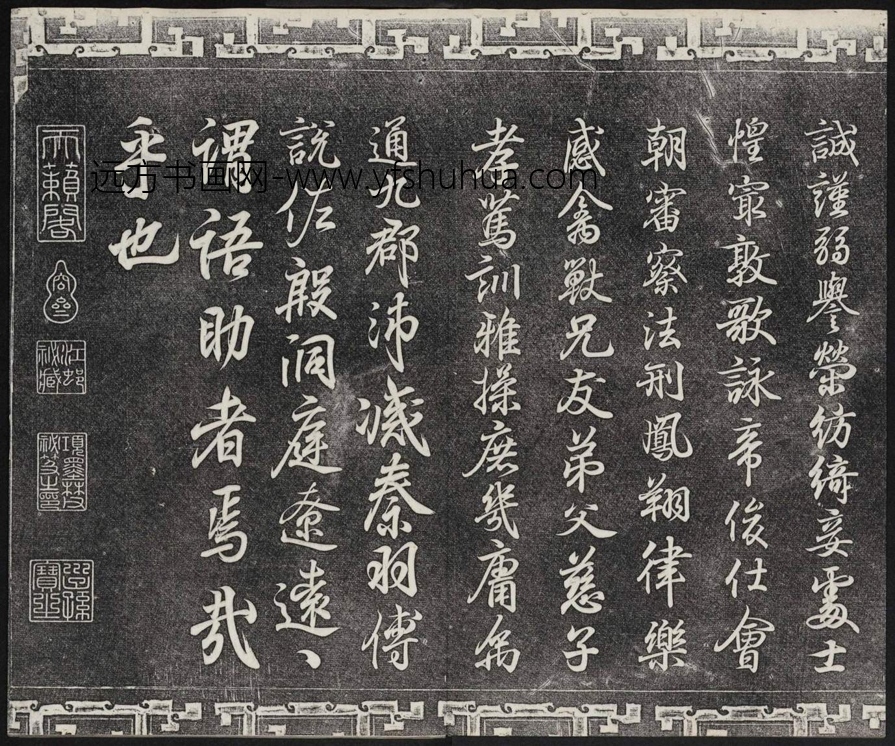 誠謹弱譽榮紡綺妾處士
惶敦歌詠帝俊仕會
朝審察法刑鳳翔律樂
感禽獸兄友弟父慈子
孝篤訓雅操庶幾庸
通九郡沛滅秦羽傅
說佐殷洞庭遼遠、
謂語助者焉哉
乎也
天籟閣
江邨祕藏
項墨林祕笈之印
远方书画网-www.yfshuhua.com